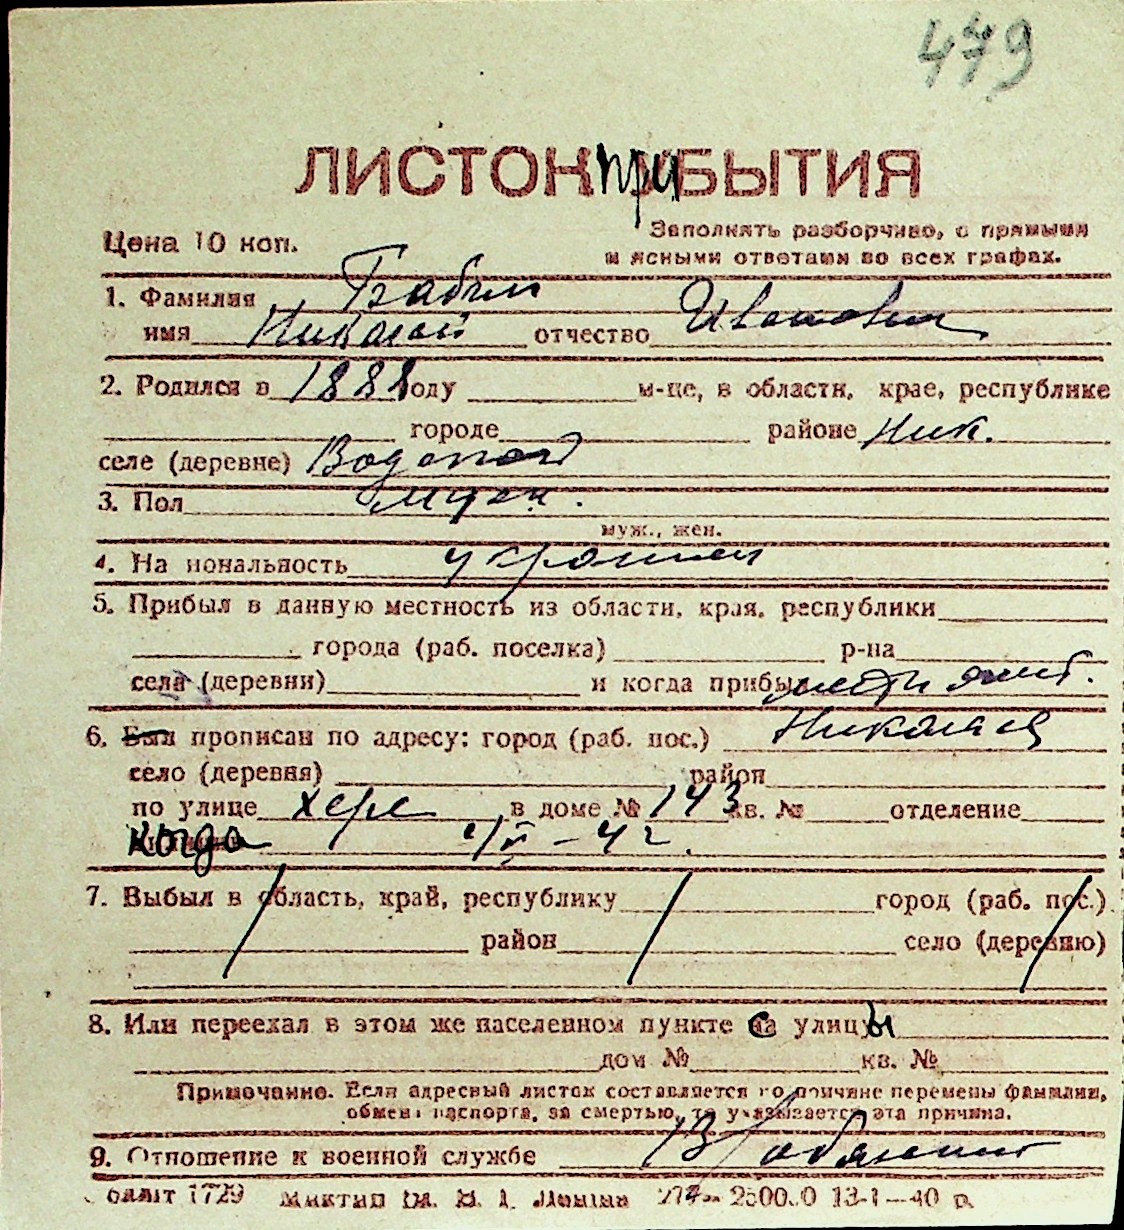 479
ЛИСТОК ПРИБЫТИЯ
Цена 10 коп.
Заполнять разборчиво, с прямыми
и ясными ответами во всех графах.
1. Фамилия Бабин
имя Николай отчество Иванович
2. Родился в 1888 году м-це, в области, крае, республике
городе районе Ник.
селе (деревне) Водопой
3. Пол муж.
муж., жен.
4. Национальность украинец
5. Прибыл в данную местность из области, края, республики
города (раб. поселка) р-на
села (деревни) и когда прибыл
6. Был прописан по адресу: город (раб. пос.) Николаев
село (деревня) район
по улице Херс в доме № 143 кв. № отделение
когда
7. Выбыл в область, край, республику город (раб. пос.)
район село (деревню)
8. Или переехал в этом же населенном пункте с улицы
дом № кв. №
Примечание. Если адресный листок составляется по причине перемены фамилии,
обмена паспорта, за смертью, то указывается эта причина.
9. Отношение к военной службе
1729 2500.0 13-I—40 р.